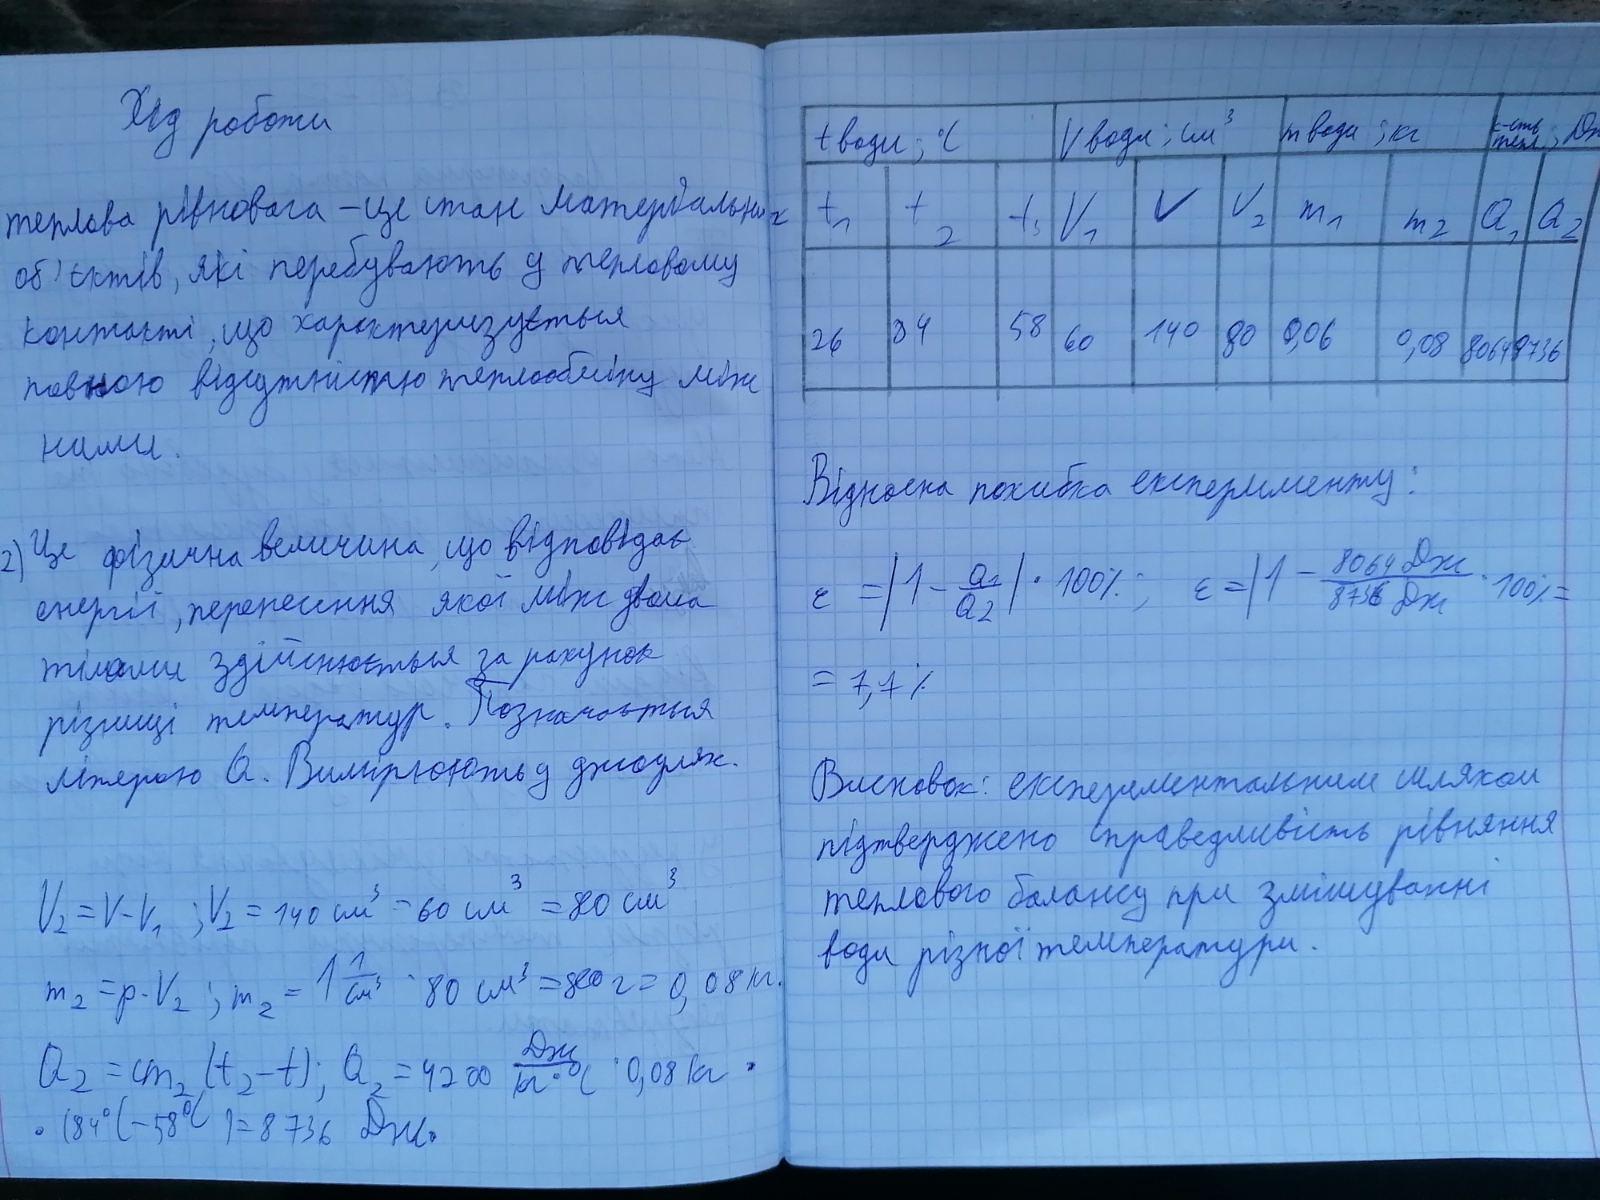 Хід роботи
теплова рівновага – це стан матеріальних
об'єктів, які перебувають у тепловому
контакті, що характеризується
повною відсутністю теплообміну між
ними.
2) Це фізична величина, що відповідає
енергії, перенесення якої між двома
тілами здійснюється за рахунок
різниці температур. Позначається
літерою Q. Вимірюють у джоулях.
V₂ = V - V₁ ; V₂ = 140 см³ - 60 см³ = 80 см³
m₂ = ρ · V₂ ; m₂ = 1 г/см³ · 80 см³ = 80 г = 0,08 кг.
Q₂ = cm₂ (t₂ - t) ; Q₂ = 4200 Дж/кг·°C · 0,08 кг ·
· (84°C - 58°C) = 8736 Дж.
t води ; °C V води ; см³ m води ; кг к-сть тепл ; Дж
t₁ t₂ t₃ V₁ V V₂ m₁ m₂ Q₁ Q₂
26 84 58 60 140 80 0,06 0,08 8064 8736
Відносна похибка експерименту:
ε = |1 - Q₁/Q₂| · 100% ; ε = |1 - 8064 Дж/8736 Дж · 100% =
= 7,7%
Висновок: експерементальним шляхом
підтверджено справедливість рівняння
теплового балансу при змішуванні
води різної температури.